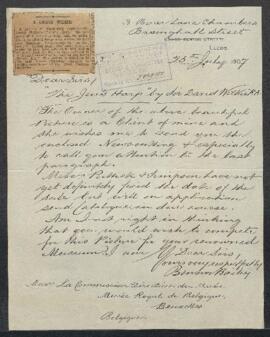 3 New Lane Chambers
Basinghall Street
LEEDS.
25th July 1907
Dear Sirs,
"The Jew's Harp" by Sir David Wilkie RA
The Owner of the above beautiful
Picture is a Client of mine and
she wishes me to send you the
enclosed Newscutting & especially
to call your attention to the last
paragraph.
Messrs Puttick & Simpson have not
yet definitely fixed the date of the
sale but will on application
send Catalogues in due course.
Am I not right in thinking
that you would wish to compete
for this Picture for your renowned
Museum? I am
Dear Sirs,
Yours respectfully
La Commission Direction des
Musée Royale de Belgique,
Bruxelles
Belgique